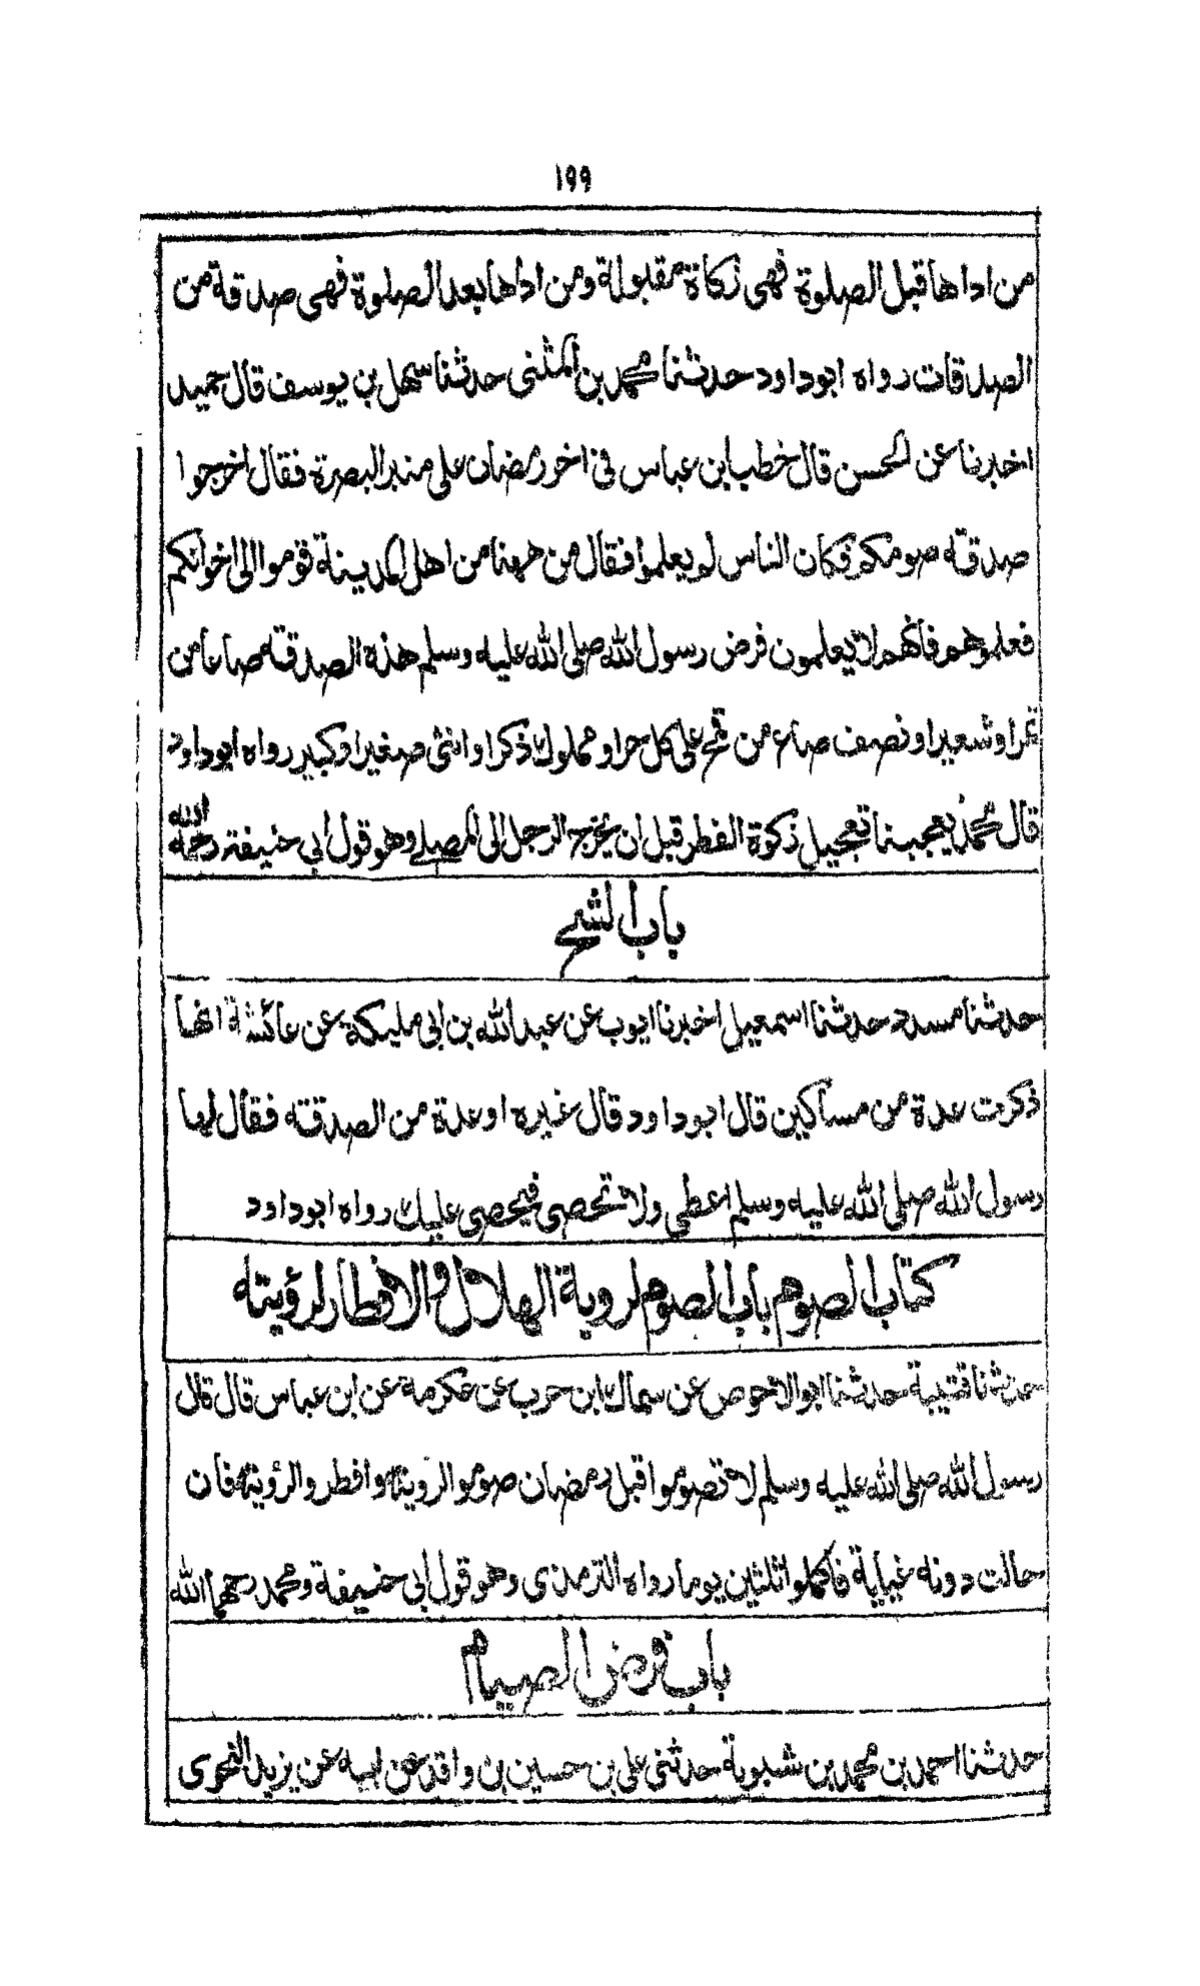 ١٩٩
من اداها قبل الصلوة فهى زكاة مقبولة ومن اداها بعد الصلوة فهى صدقة من
الصدقات رواه ابوداود حدثنا محمد بن المثنى حدثنا سهل بن يوسف قال حميد
اخبرنا عن الحسن قال خطب ابن عباس فى اخر رمضان على منبر البصرة فقال اخرجوا
صدقة صومكم فكان الناس لم يعلموا فقال من ههنا من اهل المدينة قوموا الى اخوانكم
فعلموهم فانهم لا يعلمون فرض رسول الله صلى الله عليه وسلم هذه الصدقة صاعا من
تمر او شعير او نصف صاع من قمح على كل حر او مملوك ذكر او انثى صغير او كبير رواه ابوداود
قال محمد يعجبنا تعجيل زكوة الفطر قبل ان يخرج الرجل الى المصلے وهو قول ابى حنيفة رحمه الله
باب الشح
حدثنا مسدد حدثنا اسمعيل اخبرنا ايوب عن عبد الله بن ابى مليكة عن عائشة انها
ذكرت عدة من مساكين قال ابوداود قال غيره او عدة من الصدقة فقال لها
رسول الله صلى الله عليه وسلم اعطى ولا تحصى فيحصى عليك رواه ابوداود
كتاب الصوم باب الصوم لروية الهلال والافطار لرؤيته
حدثنا قتيبة حدثنا ابوالاحوص عن سماك ابن حرب عن عكرمة عن ابن عباس قال قال
رسول الله صلى الله عليه وسلم لا تصوموا قبل رمضان صوموا لرويته وافطروا لرؤيته فان
حالت دونه غيابة فاكملوا ثلثين يوما رواه الترمذى وهو قول ابى حنيفة ومحمد رحمهما الله
باب فرض الصيام
حدثنا احمد بن محمد بن شبوية حدثنى على بن حسين بن واقد عن ابيه عن يزيد النحوى